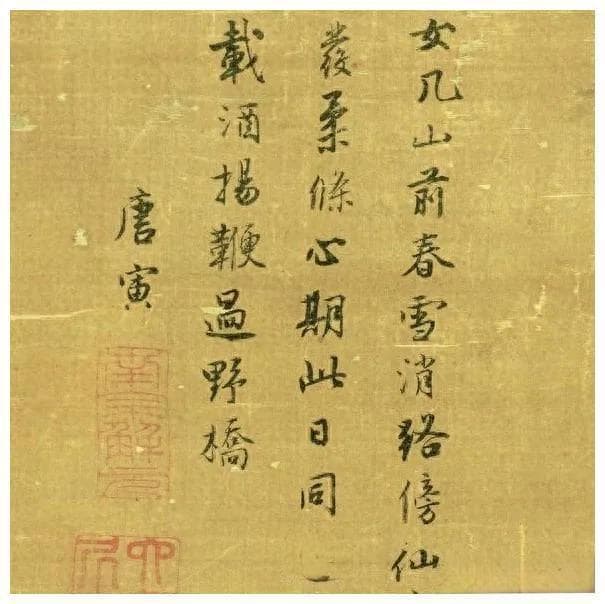 女几山前春雪消路傍仙
發柔條心期此日同
載酒揚鞭過野橋
唐寅
南京解元